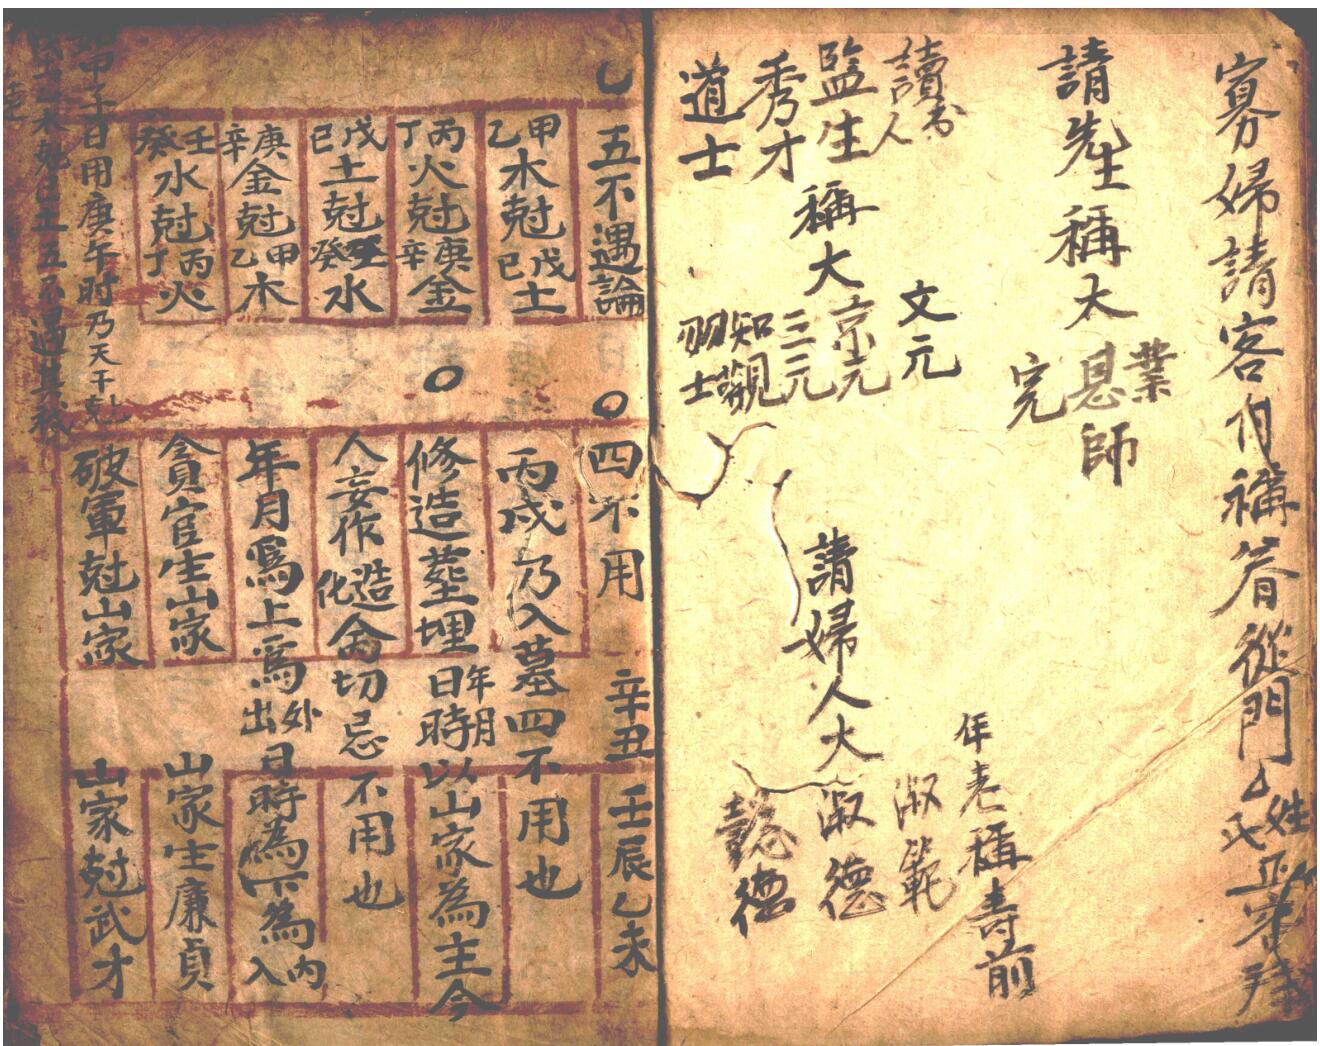 寡婦請客自稱眷從門厶姓氏
請先生稱大業師
恩
完
讀書人
文元
監生稱大京元
秀才
三元
道士
知觀
羽士
年老稱壽前
請婦人大淑德
淑範
懿德
五不遇論
甲乙木尅戊己土
丙丁火尅庚辛金
戊己土尅壬癸水
庚辛金尅甲乙木
壬癸水尅丙丁火
甲子日用庚午時乃天干尅
四不用 辛丑 壬辰 乙未
丙戌乃入墓四不用也
修造塟埋年月日時以山家為主今
人妄作造化舍切忌不用也
年月為上為外出日時為下為內入
貪官生山家 山家生廉貞
破軍尅山家 山家尅武才